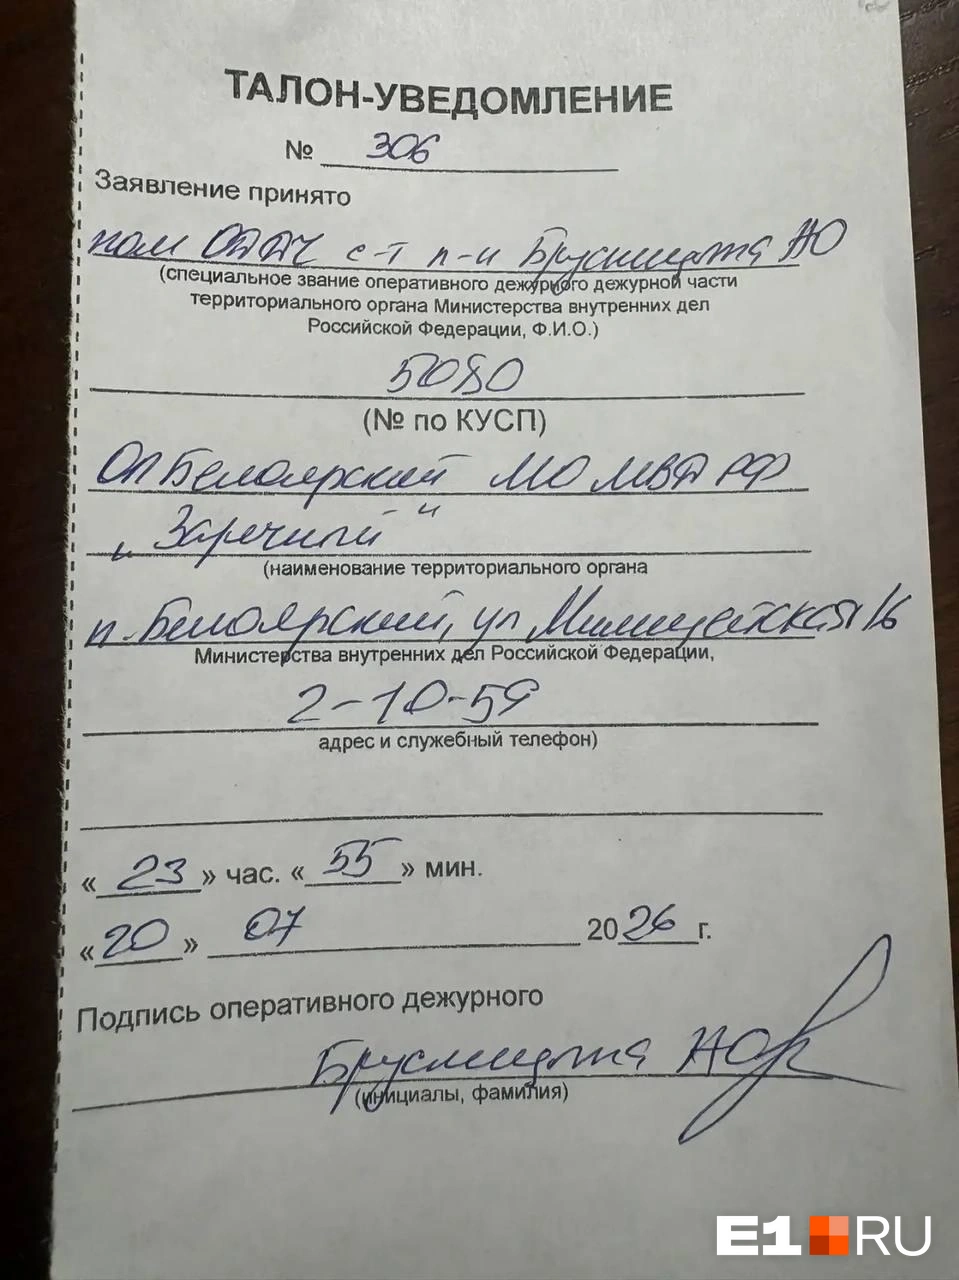 ТАЛОН-УВЕДОМЛЕНИЕ
№ 306
Заявление принято
пом ОДДЧ с-т п-и АЮ
(специальное звание оперативного дежурного дежурной части
территориального органа Министерства внутренних дел
Российской Федерации, Ф.И.О.)
5080
(№ по КУСП)
ОП Белоярский МО МВД РФ
"Заречный"
(наименование территориального органа
п. Белоярский, ул Милицейская 1б
Министерства внутренних дел Российской Федерации,
2-10-59
адрес и служебный телефон)
«23» час. «55» мин.
«20» 07 2026 г.
Подпись оперативного дежурного
АЮ
(инициалы, фамилия)
E1.RU